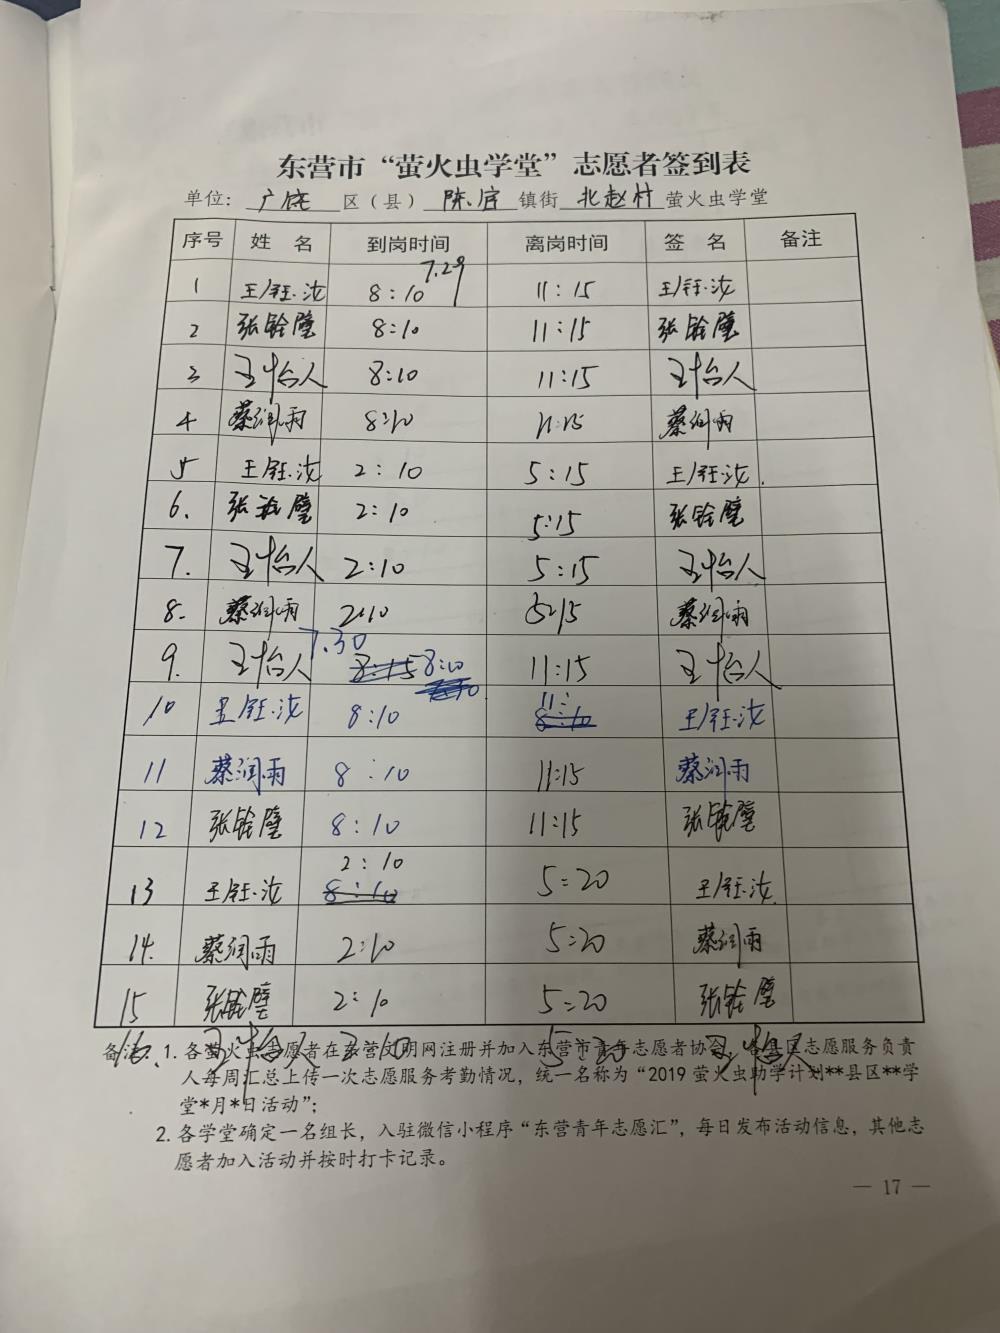 东营市“萤火虫学堂”志愿者签到表
单位：广饶 区（县） 陈官 镇街 北赵村 萤火虫学堂
序号 姓名 到岗时间 离岗时间 签名 备注
7.29
1 王钰汝 8:10 11:15 王钰汝
2 张铨璧 8:10 11:15 张铨璧
3 8:10 11:15
4 蔡润雨 8:10 11:15 蔡润雨
5 王钰汝 2:10 5:15 王钰汝.
6. 张铨璧 2:10 5:15 张铨璧
7. 2:10 5:15
8. 蔡润雨 2:10 5:15 蔡润雨
7.30
9. 8:15 8:10 11:15
10 王钰汝 8:10 11: 8:10 王钰汝
11 蔡润雨 8:10 11:15 蔡润雨
12 张铨璧 8:10 11:15 张铨璧
2:10
13 王钰汝 8:10 5:20 王钰汝
14. 蔡润雨 2:10 5:20 蔡润雨
15 张铨璧 2:10 5:20 张铨璧
16. 2:10 5:20
备注：1. 各萤火虫志愿者在东营文明网注册并加入东营市青年志愿者协会，各县区志愿服务负责
人每周汇总上传一次志愿服务考勤情况，统一名称为“2019 萤火虫助学计划**县区**学
堂*月*日活动”；
2. 各学堂确定一名组长，入驻微信小程序“东营青年志愿汇”，每日发布活动信息，其他志
愿者加入活动并按时打卡记录。
— 17 —